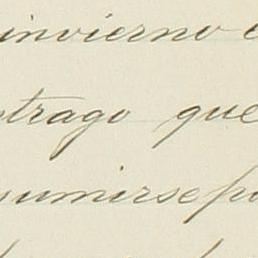 invierno
trago que
sumirse po